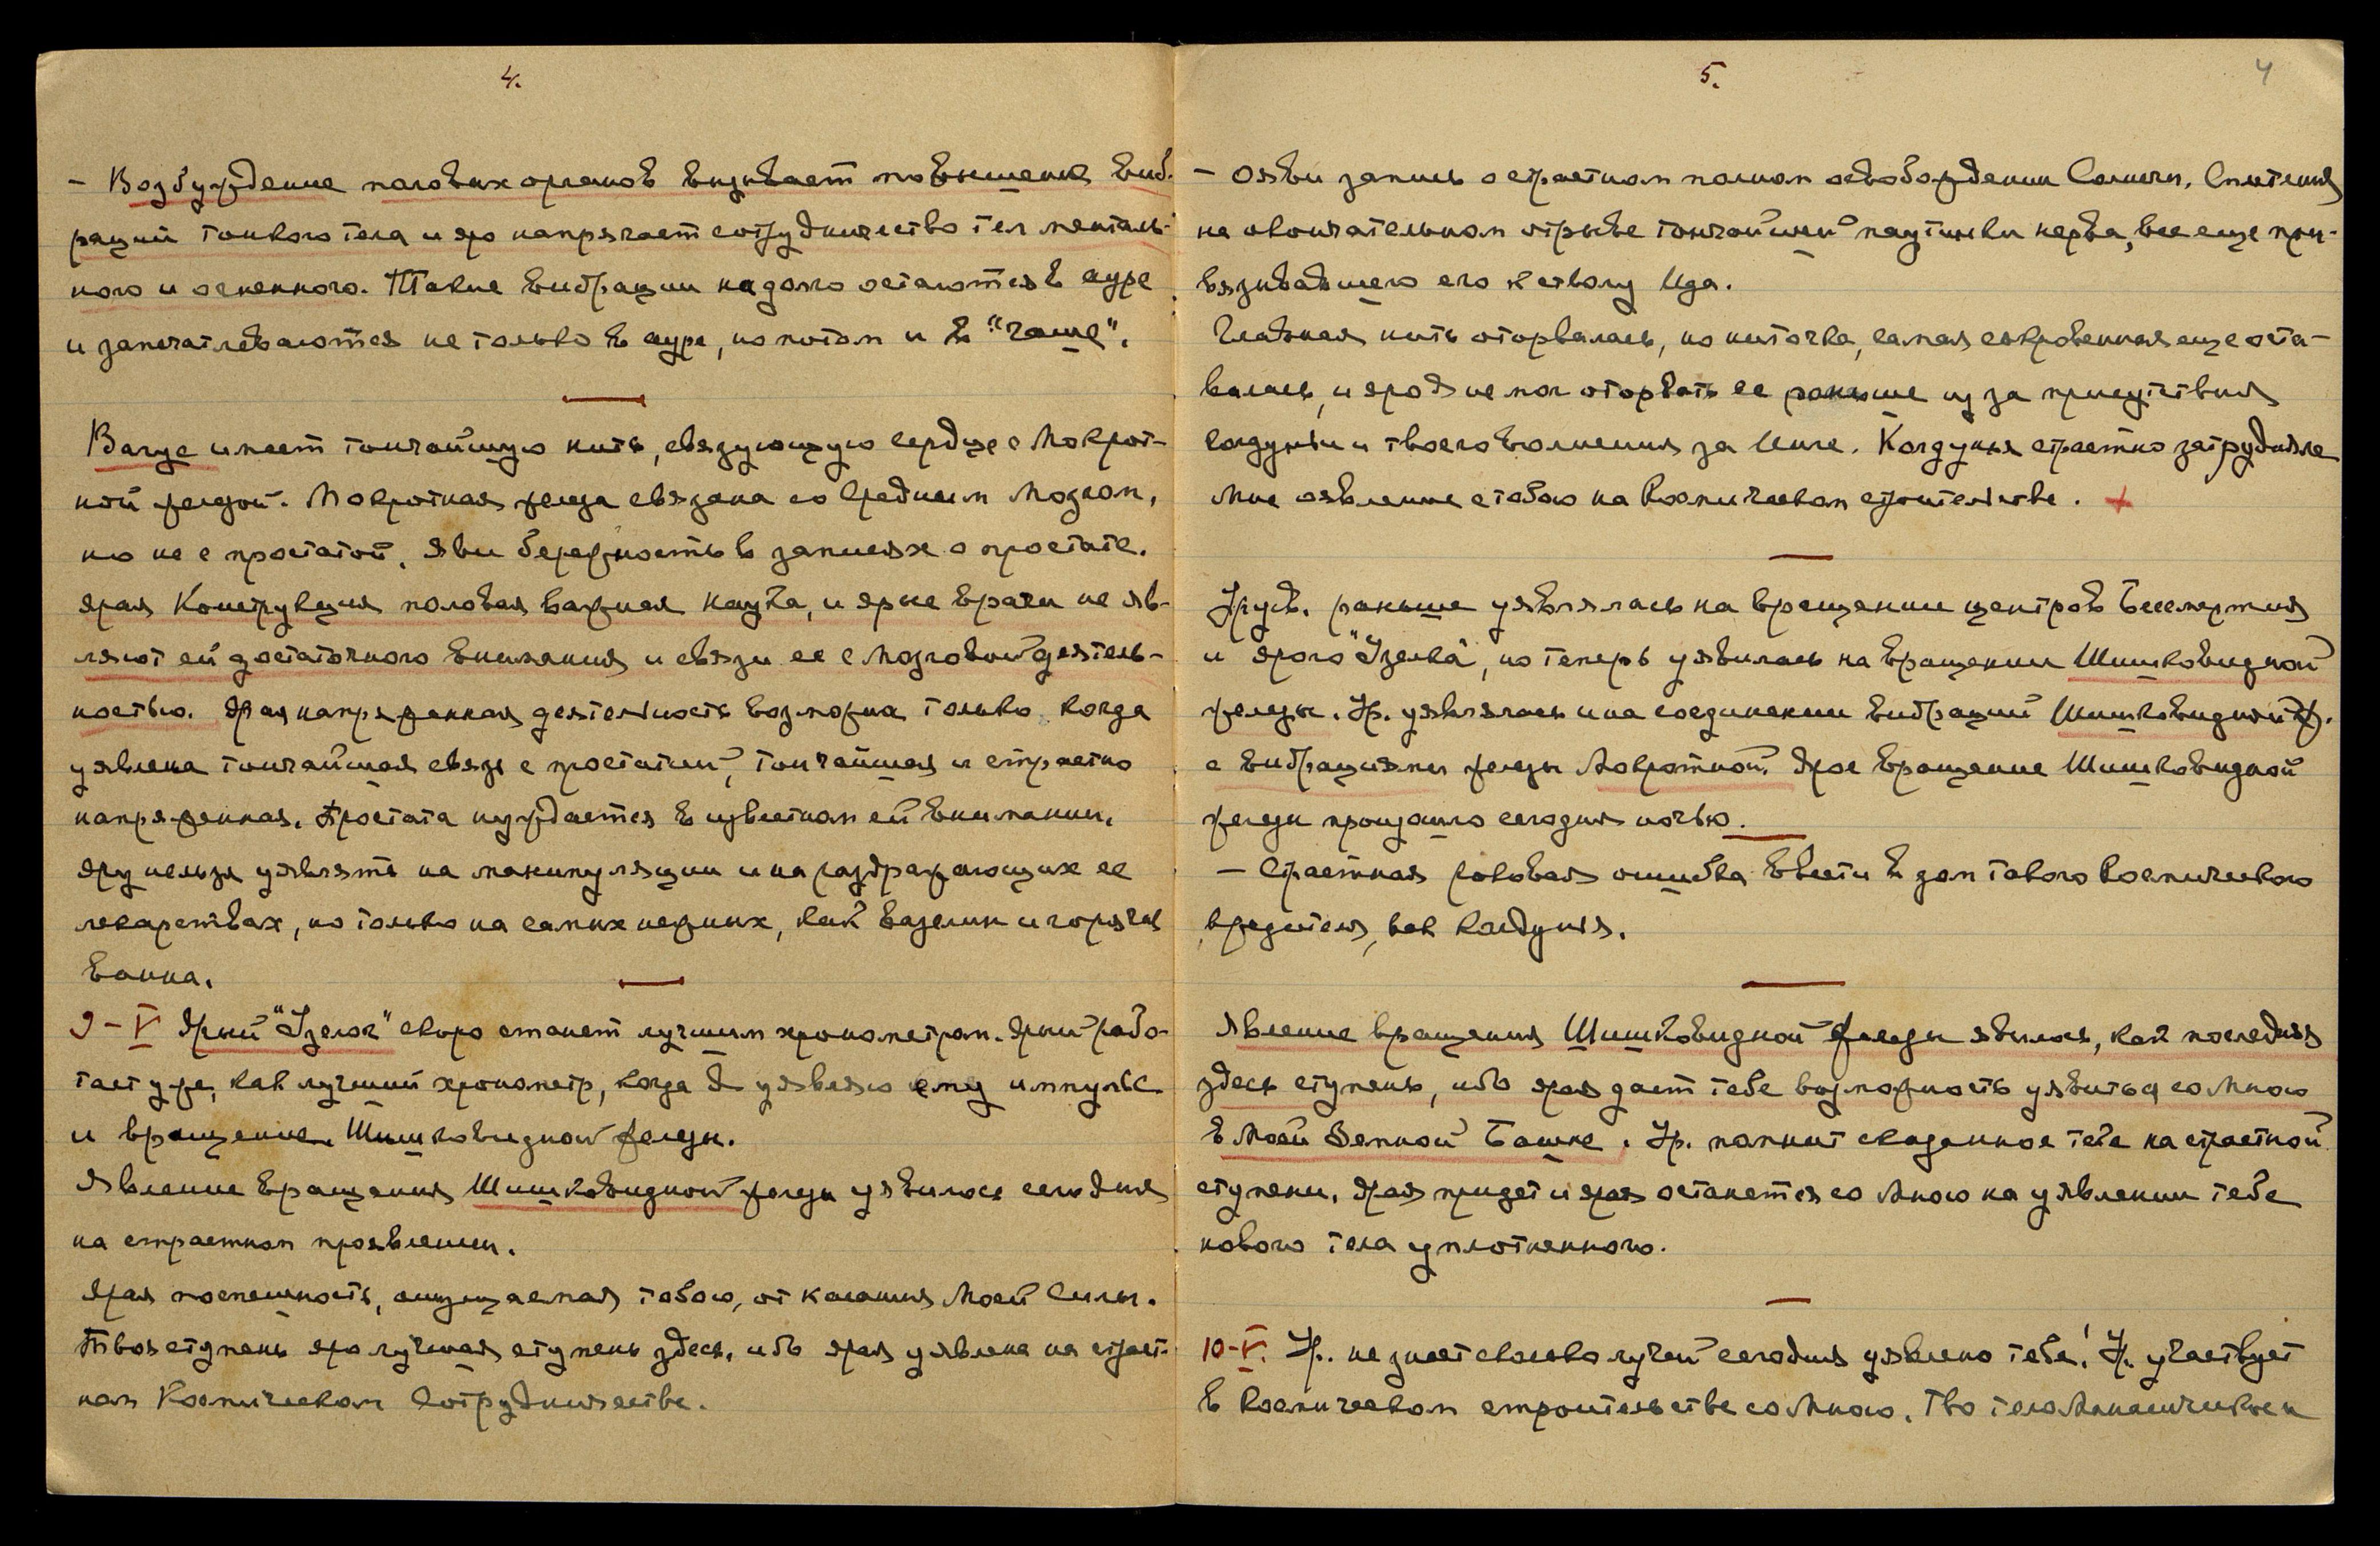 4.
- Возбуждение половых органов вызывает повышение виб-
раций тонкого тела и яро напрягает сотрудничество тел менталь-
ного и огненного. Такие вибрации надолго остаются в ауре
и запечатлеваются не только в ауре, но потом и в "чаше".
Вагус имеет тончайшую нить, связующую сердце с Мокрот-
ной железой. Мокротная железа связана со Средним Мозгом,
но не с простатой. Яви бережность в записях о простате.
Ярая Конструкция половая важная наука, и ярые врачи не яв-
ляют ей достаточного внимания и связи ее с Мозговой деятель-
ностью. Ярая напряженная деятельность возможна только когда
уявлена тончайшая связь с простатой, тончайшая и страстно
напряженная. Простата нуждается в известном ей внимании.
Яру нельзя уявлять на манипуляции и на раздражающих ее
лекарствах, но только на самых нежных, как вазелин и горячая
ванна.
9-V Ярый "Узелок" скоро станет лучшим хронометром. Ярый рабо-
тает уже, как лучший хронометр, когда Я уявляю ему импульс
и вращение Шишковидной железы.
Явление вращения Шишковидной железы уявилось сегодня
на страстном проявлении.
Ярая поспешность, ощущаемая тобою, от касания Моей Силы.
Твоя ступень яро лучшая ступень здесь, ибо ярая уявлена на страст-
ном Космическом Сотрудничестве.
5.
4
- Ояви запись о страстном полном освобождении Солнечн. Сплетения
на окончательном отрыве тончайшей паутинки нерва, все еще при-
вязывавшего его к стволу Ида.
Главная нить оторвалась, но ниточка, самая сокровенная еще оста-
валась, и яро Я не мог оторвать ее раньше из за присутствия
колдуньи и твоего волнения за Инге. Колдунья страстно затрудняла
Мне оявление с тобою на Космическом строительстве. +
Урусв. раньше уявлялась на вращении центров Бессмертия
и ярого "Узелка", но теперь уявилась на вращении Шишковидной
железы. Ур. уявлялась и на соединении вибраций Шишковидной ж.
с вибрациями железы Мокротной. Ярое вращение Шишковидной
железы произошло сегодня ночью.
- Страстная роковая ошибка ввести в дом такого космического
вредителя, как колдунья.
Явление вращения Шишковидной железы явилось, как последняя
здесь ступень, ибо ярая дает тебе возможность уявиться со Мною
в Моей Земной Башне. Ур. помнит сказанное тебе на страстной
ступени. Ярая придет и ярая останется со Мною на уявлении тебе
нового тела уплотненного.
10-V. Ур. не знает сколько лучей сегодня уявлено тебе! Ур. участвует
в космическом строительстве со Мною. Тво тело